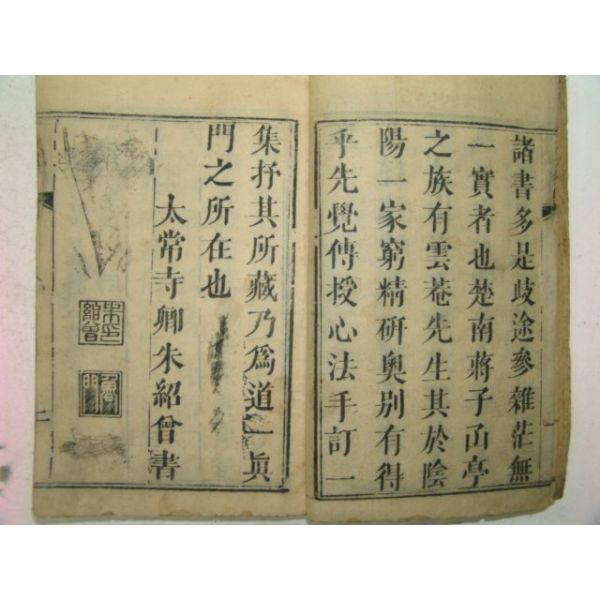 諸書多是歧途參雜茫無
一實者也楚南蔣子函亭
之族有雲菴先生其於陰
陽一家窮精硏奧别有得
乎先覺傳授心法手訂一
集抒其所藏乃爲道一眞
門之所在也
太常寺卿朱紹曾書